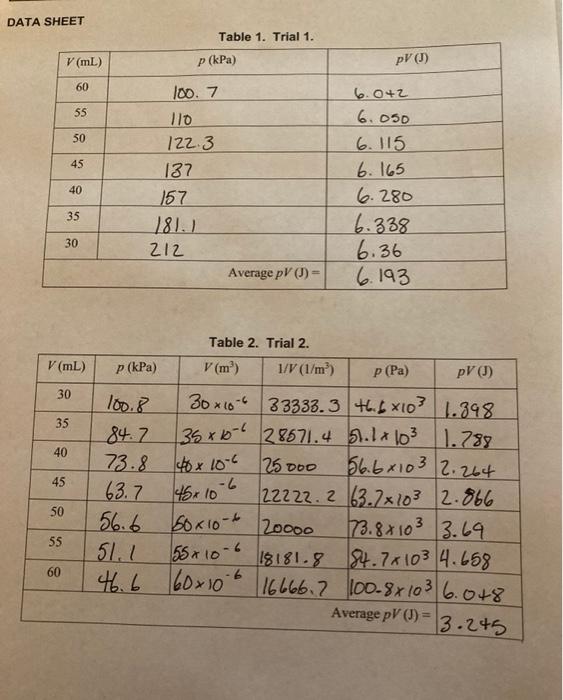 DATA SHEET
Table 1. Trial 1.
V (mL) p (kPa) pV (J)
60 100.7 6.042
55 110 6.050
50 122.3 6.115
45 137 6.165
40 157 6.280
35 181.1 6.338
30 212 6.36
Average pV (J) = 6.193
Table 2. Trial 2.
V (mL) p (kPa) V (m³) 1/V (1/m³) p (Pa) pV (J)
30 100.8 30 x 10⁻⁶ 33333.3 46.6 x10³ 1.398
35 84.7 35 x 10⁻⁶ 28571.4 51.1 x 10³ 1.788
40 73.8 40 x 10⁻⁶ 25000 56.6 x 10³ 2.264
45 63.7 45 x 10⁻⁶ 22222.2 63.7x10³ 2.866
50 56.6 50 x 10⁻⁶ 20000 73.8 x 10³ 3.69
55 51.1 55 x 10⁻⁶ 18181.8 84.7 x 10³ 4.658
60 46.6 60 x 10⁻⁶ 16666.7 100.8 x 10³ 6.048
Average pV (J) = 3.245